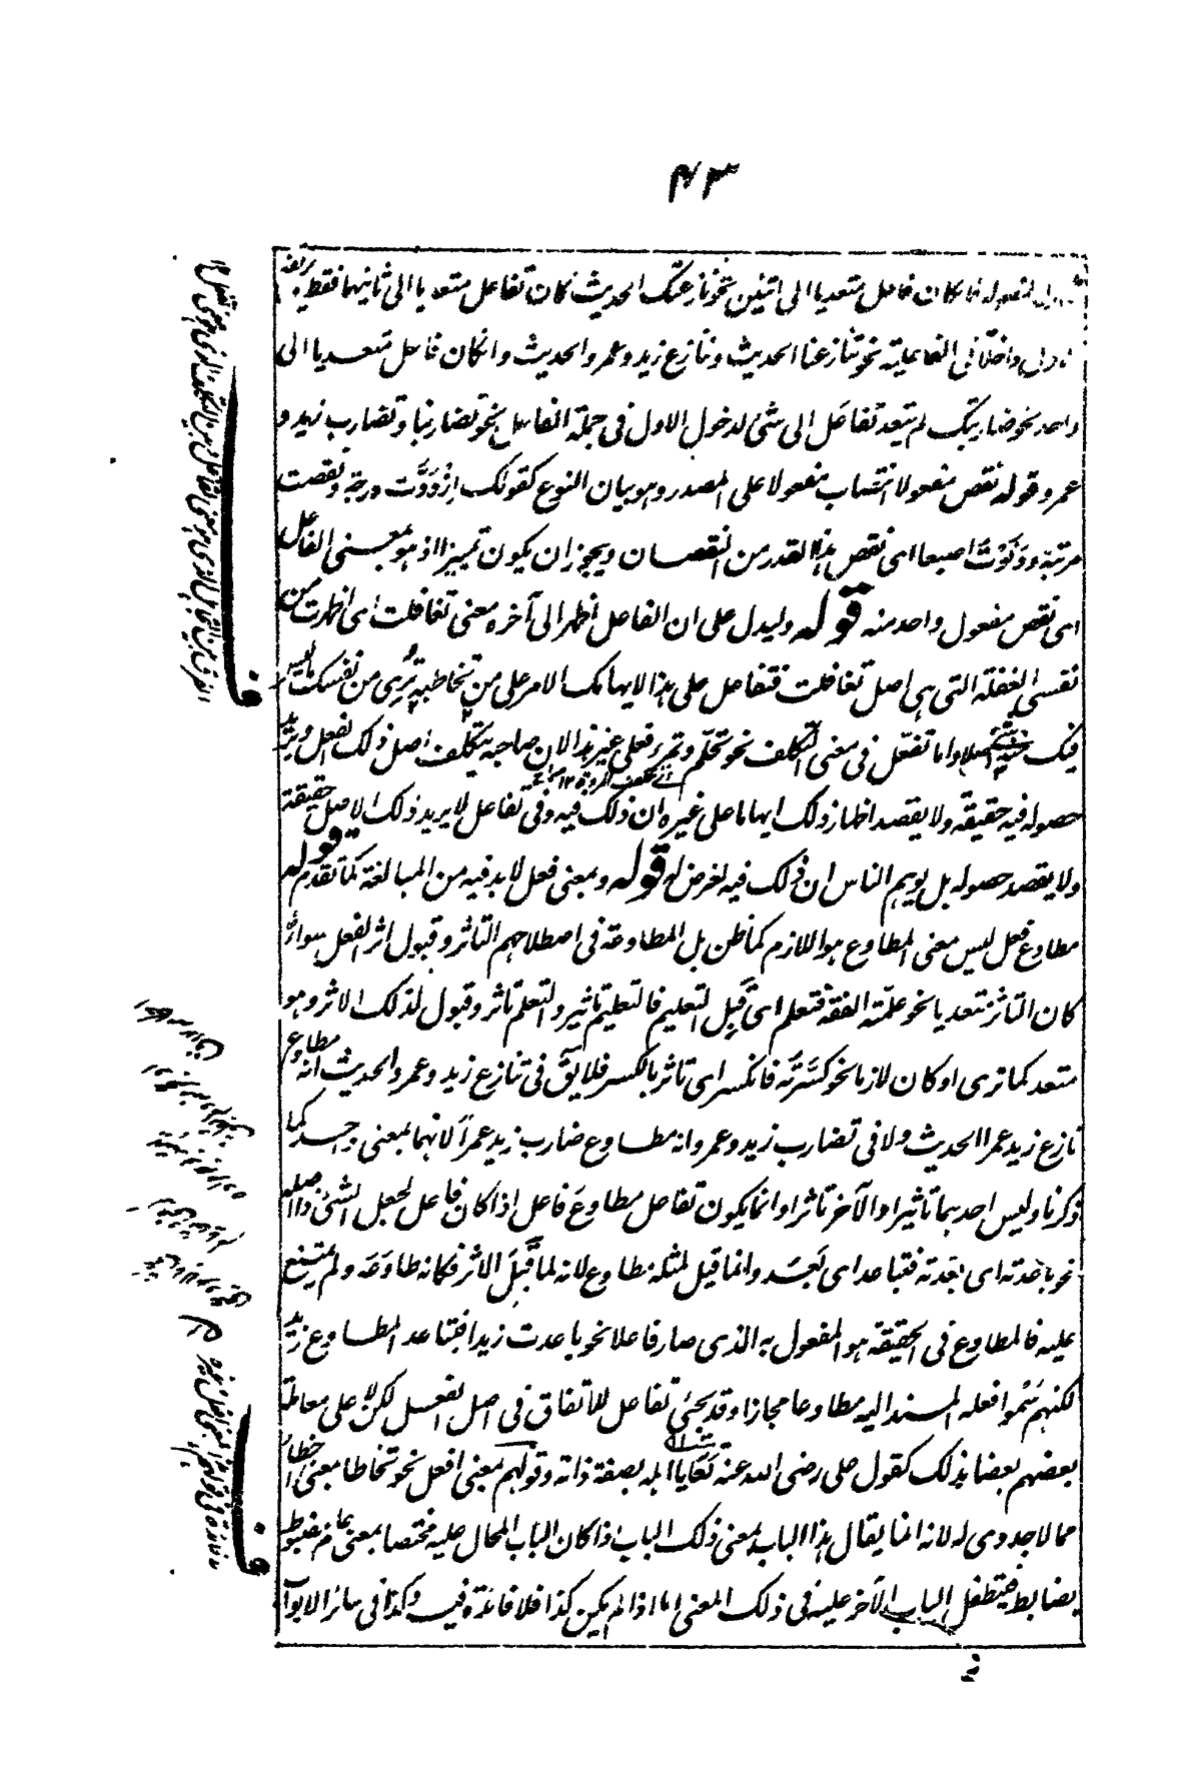 ٤٣
المفعول فان كان فاعل متعديا الى اثنين نحو نازعتك الحديث كان تفاعل متعديا الى ثانيهما فقط يرتفع
الاول داخلا فى الفاعلية نحو تنازعنا الحديث وتنازع زيد وعمرو الحديث وانكان فاعل متعديا الى
واحد نحو ضاربتك لم يتعد تفاعل الى شئ لدخول الاول فى جملة الفاعل نحو تضاربنا وتضارب زيد و
عمرو قوله نقص مفعولا انتصاب مفعولا على المصدر وهو بيان النوع كقولك ازددت درجة ونقصت
مرتبة ودنوت اصبعا اى نقص هذا القدر من النقصان ويجوز ان يكون تمييزا اذ هو بمعنى الفاعل
اى نقص مفعول واحد منه قوله وليدل على ان الفاعل اظهر الى آخره معنى تغافلت اى اظهرت من
نفسى الغفلة التى هى اصل تغافلت فتفاعل على هذا لايهامك الامر على من تخاطبه وترى من نفسك ما ليس
فيك منه شئ اصلا واما تفعّل فى معنى التكلف نحو تحلّم وتمرء فعلى غير هذا لان صاحبه يتكلف اصل ذلك الفعل ويريد
حصوله فيه حقيقة ولا يقصد اظهار ذلك ايهاما على غيره ان ذلك فيه وفى تفاعل لا يريد ذلك الاصل حقيقة
ولا يقصد حصوله بل يوهم الناس ان ذلك فيه لغرض له قوله وبمعنى فعل لابد فيه من المبالغة كما تقدم قوله
مطاوع فعل ليس معنى المطاوع هو اللازم كما ظن بل المطاوعة فى اصطلاحهم التاثر وقبول اثر الفعل سواء
كان التاثر متعديا نحو علمته الفقه فتعلم اى قبل التعليم فالتعليم تاثير والتعلم تاثر وقبول لذلك الاثر وهو
متعد كما ترى او كان لازما نحو كسرته فانكسر اى تاثر بالكسر فلا يق فى تنازع زيد وعمرو الحديث انه مطاوع
نازع زيد عمرا الحديث ولا فى تضارب زيد وعمرو انه مطاوع ضارب زيد عمرا لانهما بمعنى واحد كما
ذكرنا وليس احدهما تاثيرا والآخر تاثرا وانما يكون تفاعل مطاوع فاعل اذا كان فاعل لجعل الشئ ذا اصله
نحو باعدته اى بعدته فتباعد اى بعد وانما قيل لمثله مطاوع لانه لما قبل الاثر فكانه طاوعه ولم يمتنع
عليه فالمطاوع فى الحقيقة هو المفعول به الذى صار فاعلا نحو باعدت زيدا فتباعد المطاوع زيد
لكنهم سموا فعله المسند اليه مطاوعا مجازا وقد يجئ تفاعل للاتفاق فى اصل الفعل لكن لا على معاملة
بعضهم بعضا بذلك كقول على رضى الله عنه تعايا اهله بصفة ذاته وقولهم بمعنى افعل نحو تخاطا بمعنى اخطأ
مما لا جدوى له لانه انما يقال هذا الباب بمعنى ذلك الباب اذا كان الباب المحال عليه مختصا بمعنى عام مضبوط
بضابط فيتطفل الباب الآخر عليه فى ذلك المعنى اما اذا لم يكن كذا فلا فائدة فيه وكذا فى سائر الابواب